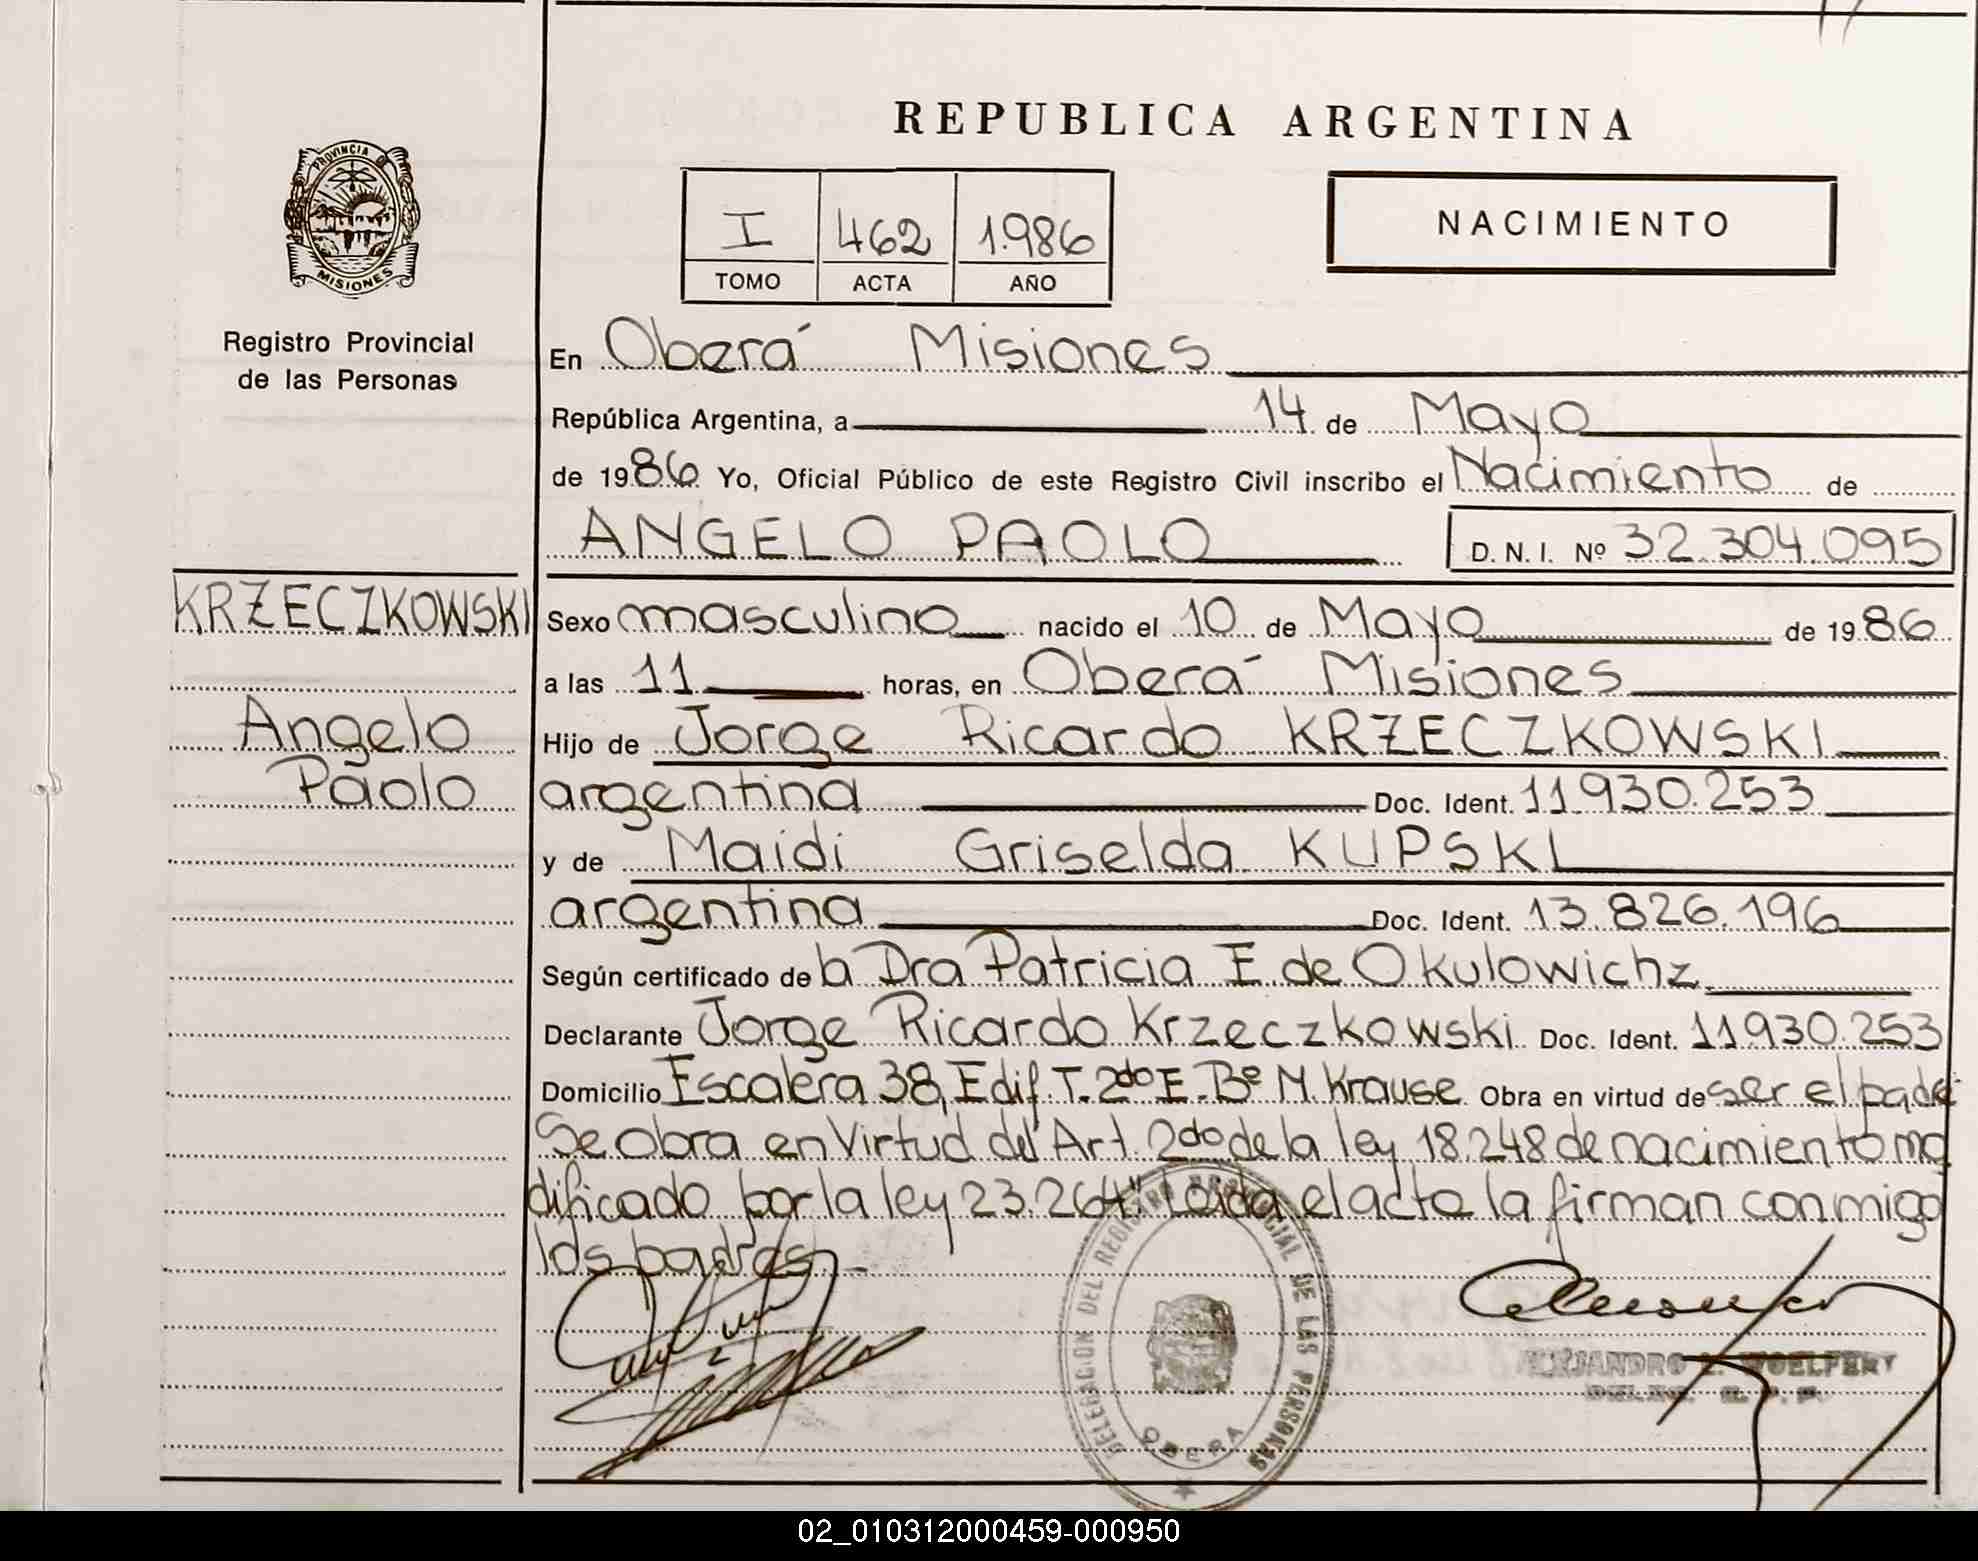 REPUBLICA ARGENTINA
PROVINCIA DE
MISIONES
I 462 1.986
TOMO ACTA AÑO
NACIMIENTO
Registro Provincial
de las Personas
En Oberá Misiones
República Argentina, a 14 de Mayo
de 1986 Yo, Oficial Público de este Registro Civil inscribo el Nacimiento de
ANGELO PAOLO D. N. I. Nº 32.304.095
KRZECZKOWSKI
Angelo
Paolo
Sexo masculino nacido el 10 de Mayo de 1986
a las 11 horas, en Oberá Misiones
Hijo de Jorge Ricardo KRZECZKOWSKI
argentina Doc. Ident. 11.930.253
y de Maidi Griselda KUPSKI
argentina Doc. Ident. 13.826.196
Según certificado de la Dra Patricia E. de Okulowichz
Declarante Jorge Ricardo Krzeczkowski Doc. Ident. 11.930.253
Domicilio Escalera 38, Edif. T. 2do E. Bº M. Krause Obra en virtud de ser el padre
Se obra en Virtud del Art. 2do de la ley 18.248 de nacimiento mo
dificado por la ley 23.264" Leida el acta la firman conmigo
los padres.-
DELEGACION DEL REGISTRO PROVINCIAL DE LAS PERSONAS
OBERA
ALEJANDRO
02_010312000459-000950